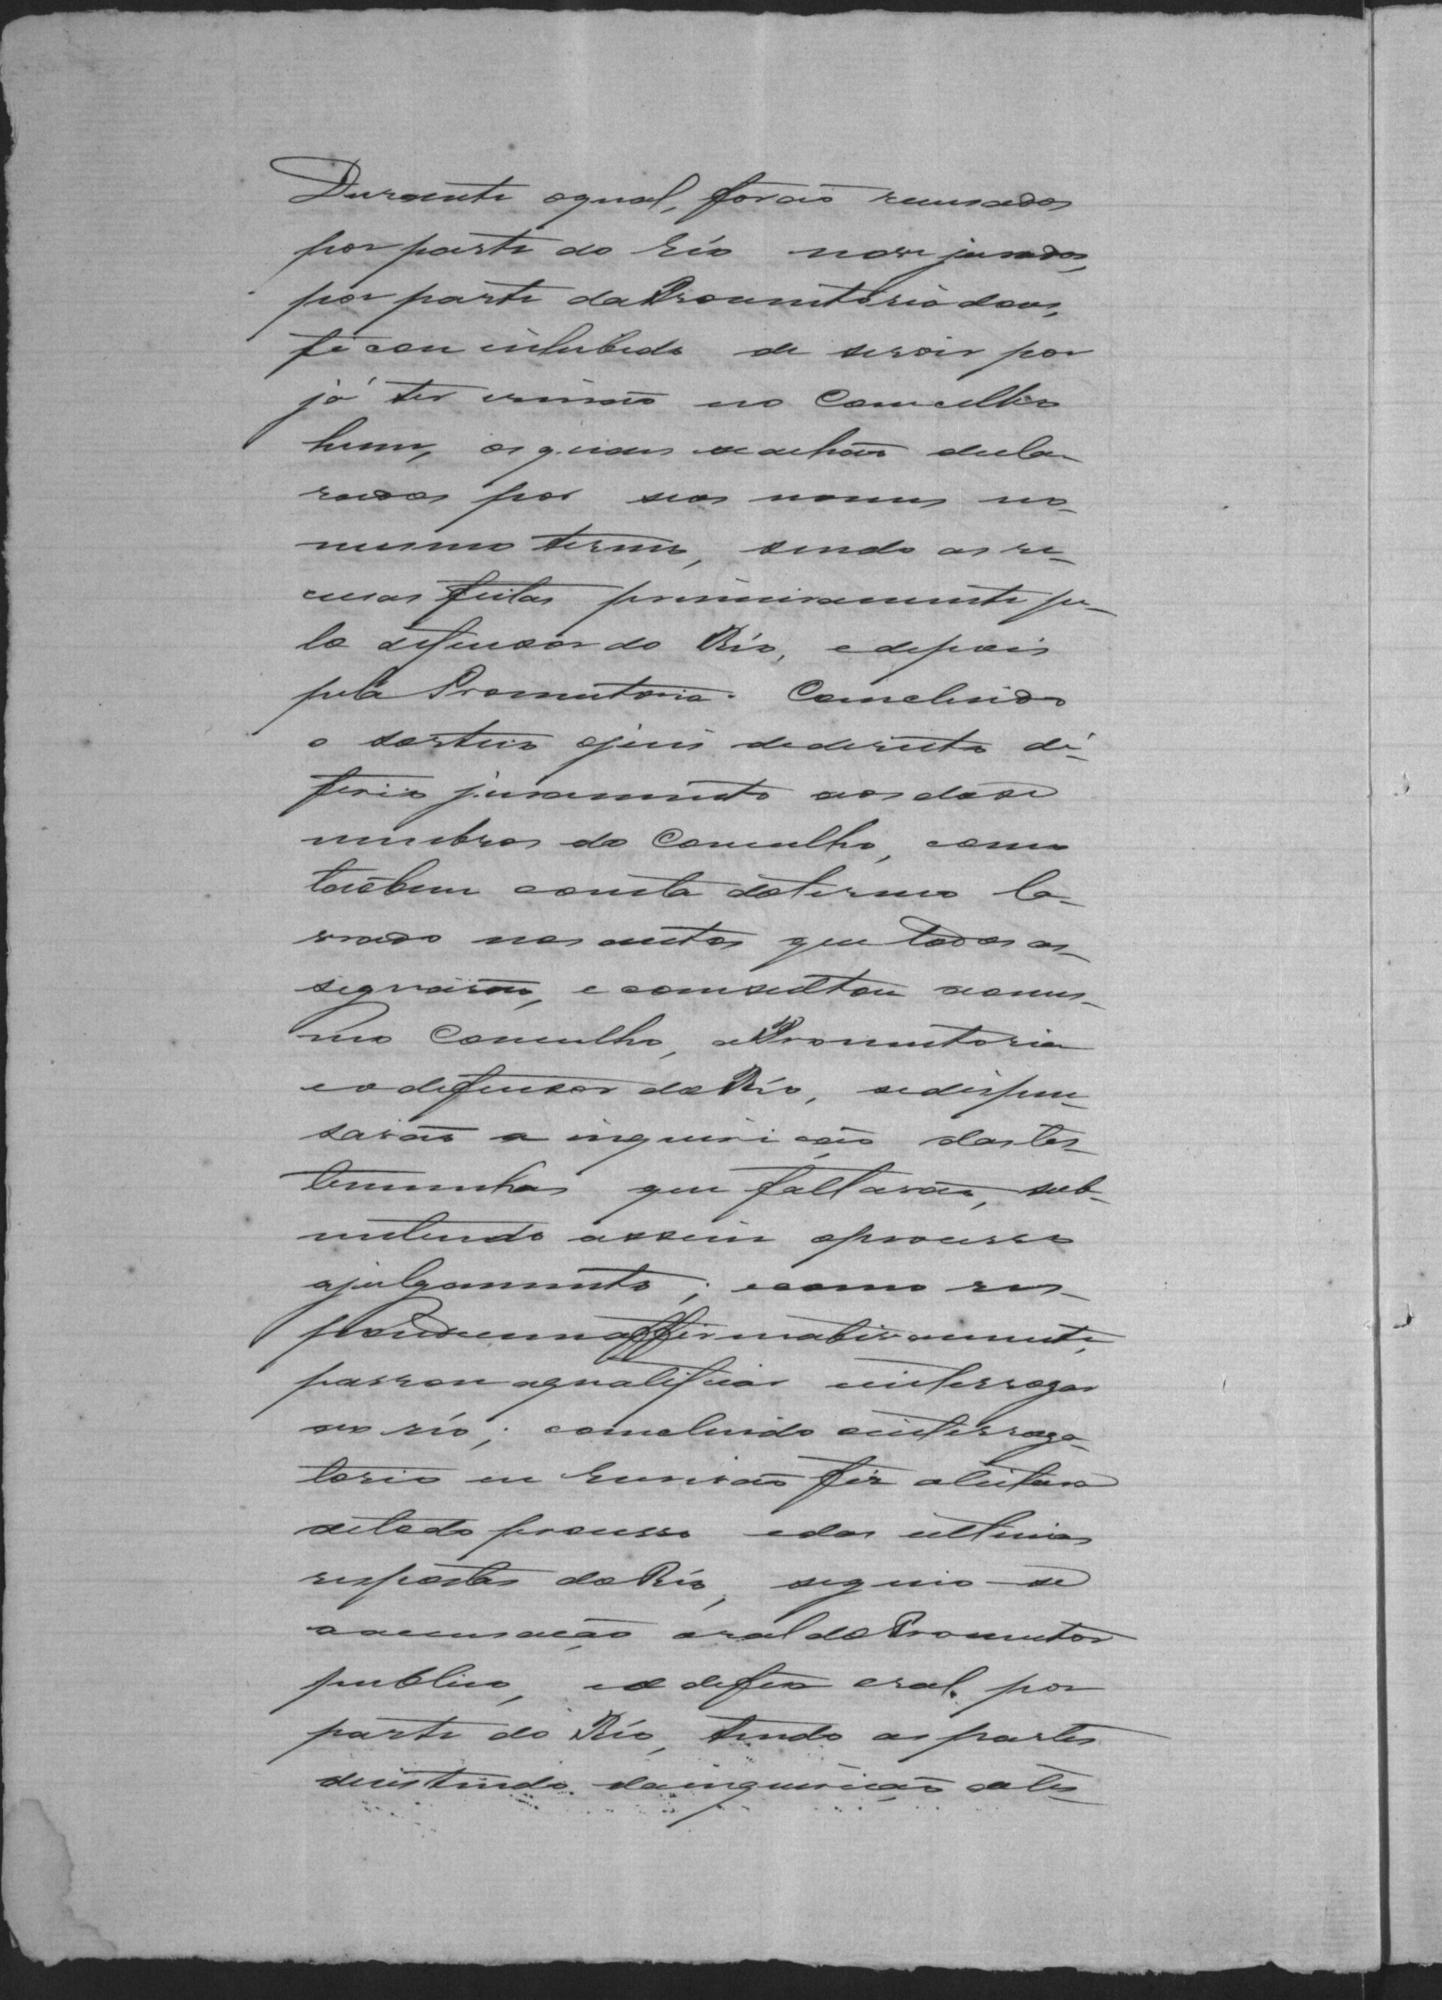 Durante oqual, forão recusados
por parte do réo nove jurados,
por parte da Promutoria dous,
ficou inhibido de servir por
já ter irmão no Concelho
hum, os quaes se achão decla-
rados por seos nomes no
mesmo termo, sendo as re-
cusas feitas primeiramente pe-
lo defensor do Réo, e depois
pela Promutoria. Concluido
o sorteio ojuis de dereito de-
ferio juramento aos dose
membros do Concelho, como
tãobem consta do termo la-
vrado nos autos que todos as-
signarão, e consultou ao mes-
mo Concelho, a Promutoria
e o defensor do Réo, se dispen-
savão a inquirição das tes-
temunhas que faltarão, sub-
metendo assim o processo
a julgamento; e como res-
pondecem affirmativamente,
passou a qualificar e interrogar
ao réo; concluido o interroga-
torio eu Escrivão fiz a leitura
de todo processo e das ultimas
respostas do Réo, seguio-se
a acusação oral do Promutor
publico, e a defesa oral por
parte do Réo, tendo as partes
desistindo da inquirição de tes-